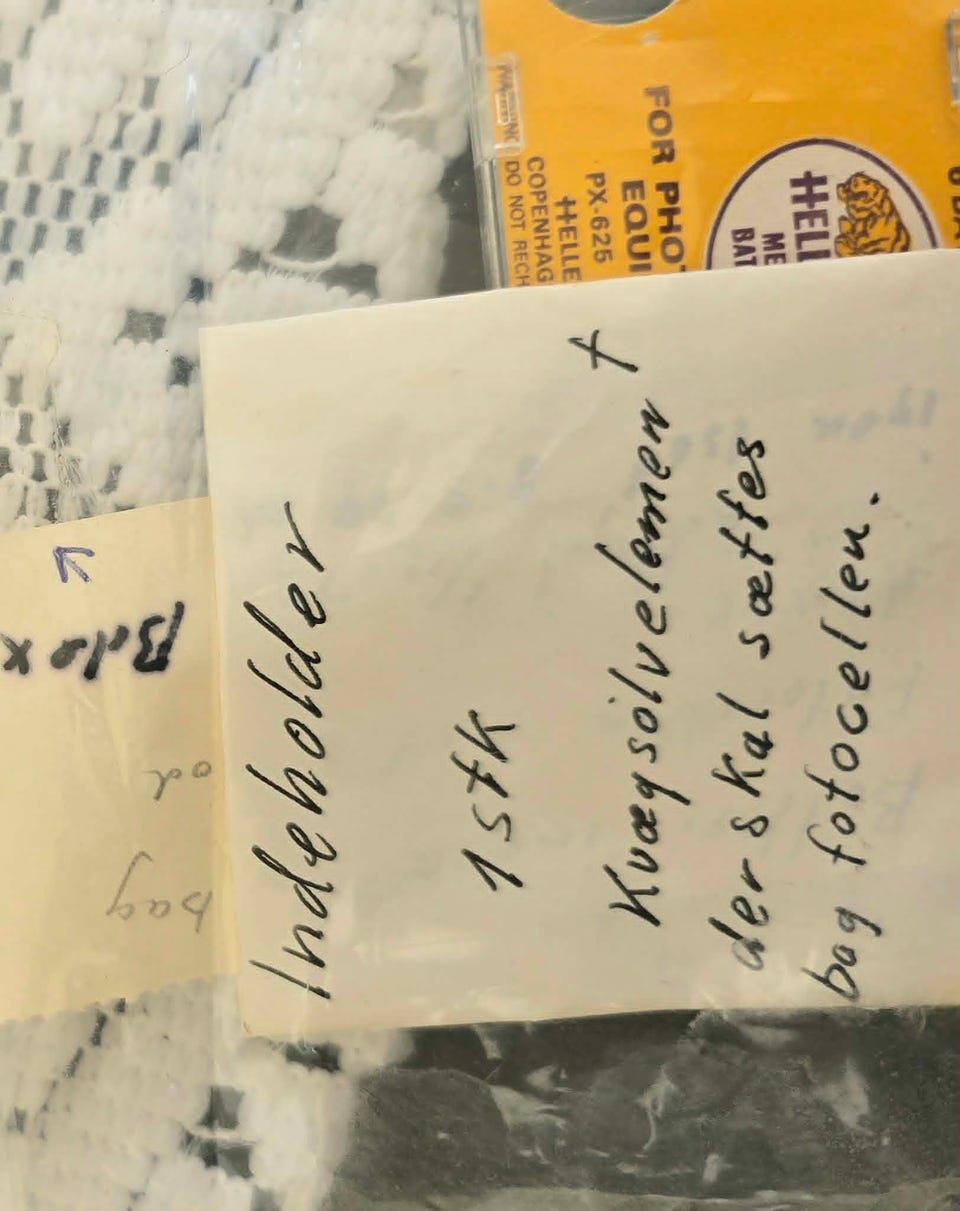 Indeholder
1 stk
Kvægsølvelement
der skal sættes
bag fotocellen.
FOR PHO
EQUI
PX-625
HELLE
COPENHAG
DO NOT RECH
HELL
ME
BAT